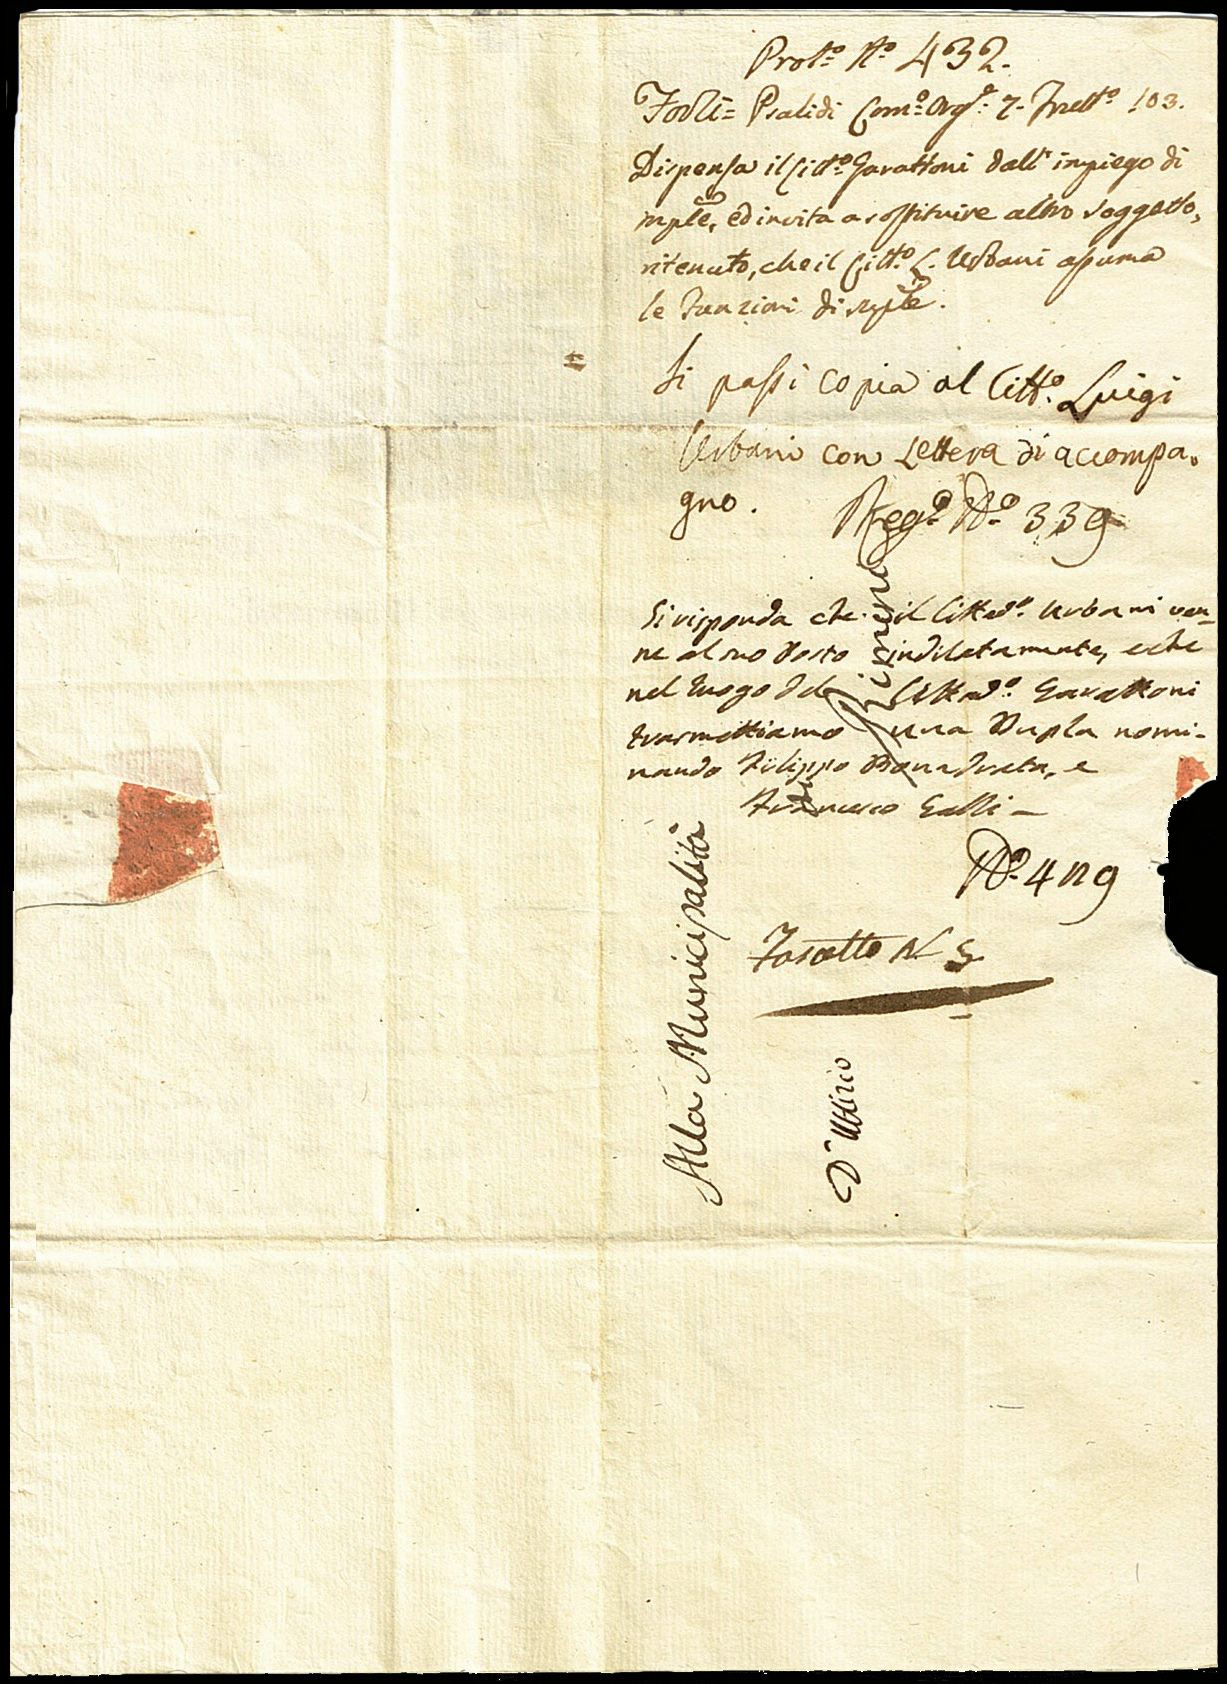 Prot.º N.º 432.
Forlì = Psalidi Com.º Org.e 7. 103.
Dispensa il Citt.º Garattoni dall' impiego di
mple, ed invita a sostituire altro soggetto,
ritenuto, che il Citt.º L. Urbani assuma
le Funzioni di mple.
Si passi copia al Citt.º Luigi
Urbani con Lettera di accompa-
gno.
Reg.º N.º 339
Si risponda che il Cittad.º Urbani ven-
ne al suo Posto indilatamente, e che
nel luogo del Cittad.º Garattoni
trasmettiamo una Dupla nomi-
nando Filippo e
Francesco Galli -
N.º 429
Alla Municipalità
di Rimini
D'Uffizio